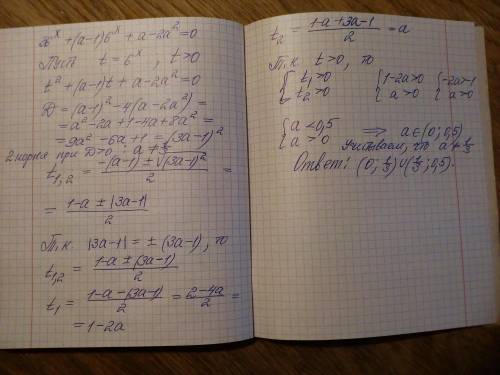 36^x + (a-1)6^x + a - 2a² = 0
Пит t = 6^x, t > 0
t² + (a-1)t + a - 2a² = 0
D = (a-1)² - 4(a - 2a²) =
= a² - 2a + 1 - 4a + 8a² =
= 9a² - 6a + 1 = (3a-1)²
2 корня при D>0 : a ≠ 1/3
t₁,₂ = (-(a-1) ± √(3a-1)²)/2 =
= (1-a ± |3a-1|)/2
Т.к. |3a-1| = ±(3a-1), то
t₁,₂ = (1-a ± (3a-1))/2
t₁ = (1-a-(3a-1))/2 = (2-4a)/2 =
= 1-2a
t₂ = (1-a+3a-1)/2 = a
Т.к. t>0, то
{ t₁>0 { 1-2a>0 { -2a>-1
{ t₂>0 { a>0 { a>0
{ a<0,5
{ a>0 ⟹ a∈(0; 0,5)
Учитываем, что a ≠ 1/3
Ответ: (0; 1/3)∪(1/3; 0,5).